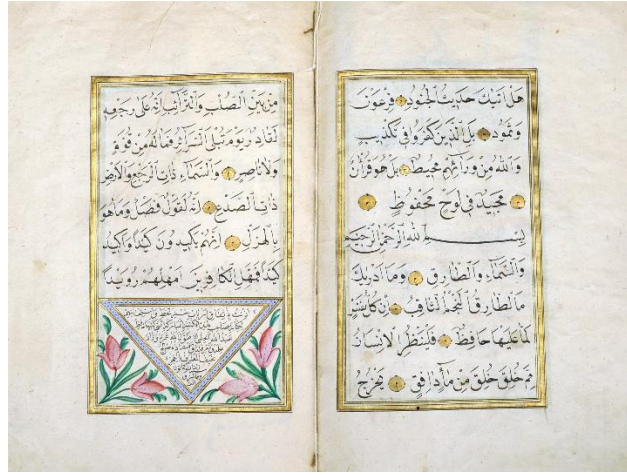 هَلْ أَتٰيكَ حَدِيثُ الْجُنُودِ فِرْعَوْنَ
وَثَمُودَ بَلِ الَّذِينَ كَفَرُوا فِي تَكْذِيبٍ
وَاللّٰهُ مِنْ وَرَائِهِمْ مُحِيطٌ بَلْ هُوَ قُرْاٰنٌ
مَجِيدٌ فِي لَوْحٍ مَحْفُوظٍ
بِسْمِ اللّٰهِ الرَّحْمٰنِ الرَّحِيمِ
وَالسَّمَاءِ وَالطَّارِقِ وَمَا أَدْرٰيكَ
مَا الطَّارِقُ النَّجْمُ الثَّاقِبُ إِنْ كُلُّ نَفْسٍ
لَمَّا عَلَيْهَا حَافِظٌ فَلْيَنْظُرِ الْاِنْسَانُ
مِمَّ خُلِقَ خُلِقَ مِنْ مَاءٍ دَافِقٍ يَخْرُجُ
مِنْ بَيْنِ الصُّلْبِ وَالتَّرَائِبِ إِنَّهُ عَلَى رَجْعِهِ
لَقَادِرٌ يَوْمَ تُبْلَى السَّرَائِرُ فَمَا لَهُ مِنْ قُوَّةٍ
وَلَا نَاصِرٍ وَالسَّمَاءِ ذَاتِ الرَّجْعِ وَالْاَرْضِ
ذَاتِ الصَّدْعِ إِنَّهُ لَقَوْلٌ فَصْلٌ وَمَا هُوَ
بِالْهَزْلِ إِنَّهُمْ يَكِيدُونَ كَيْدًا وَأَكِيدُ
كَيْدًا فَمَهِّلِ الْكَافِرِينَ أَمْهِلْهُمْ رُوَيْدًا